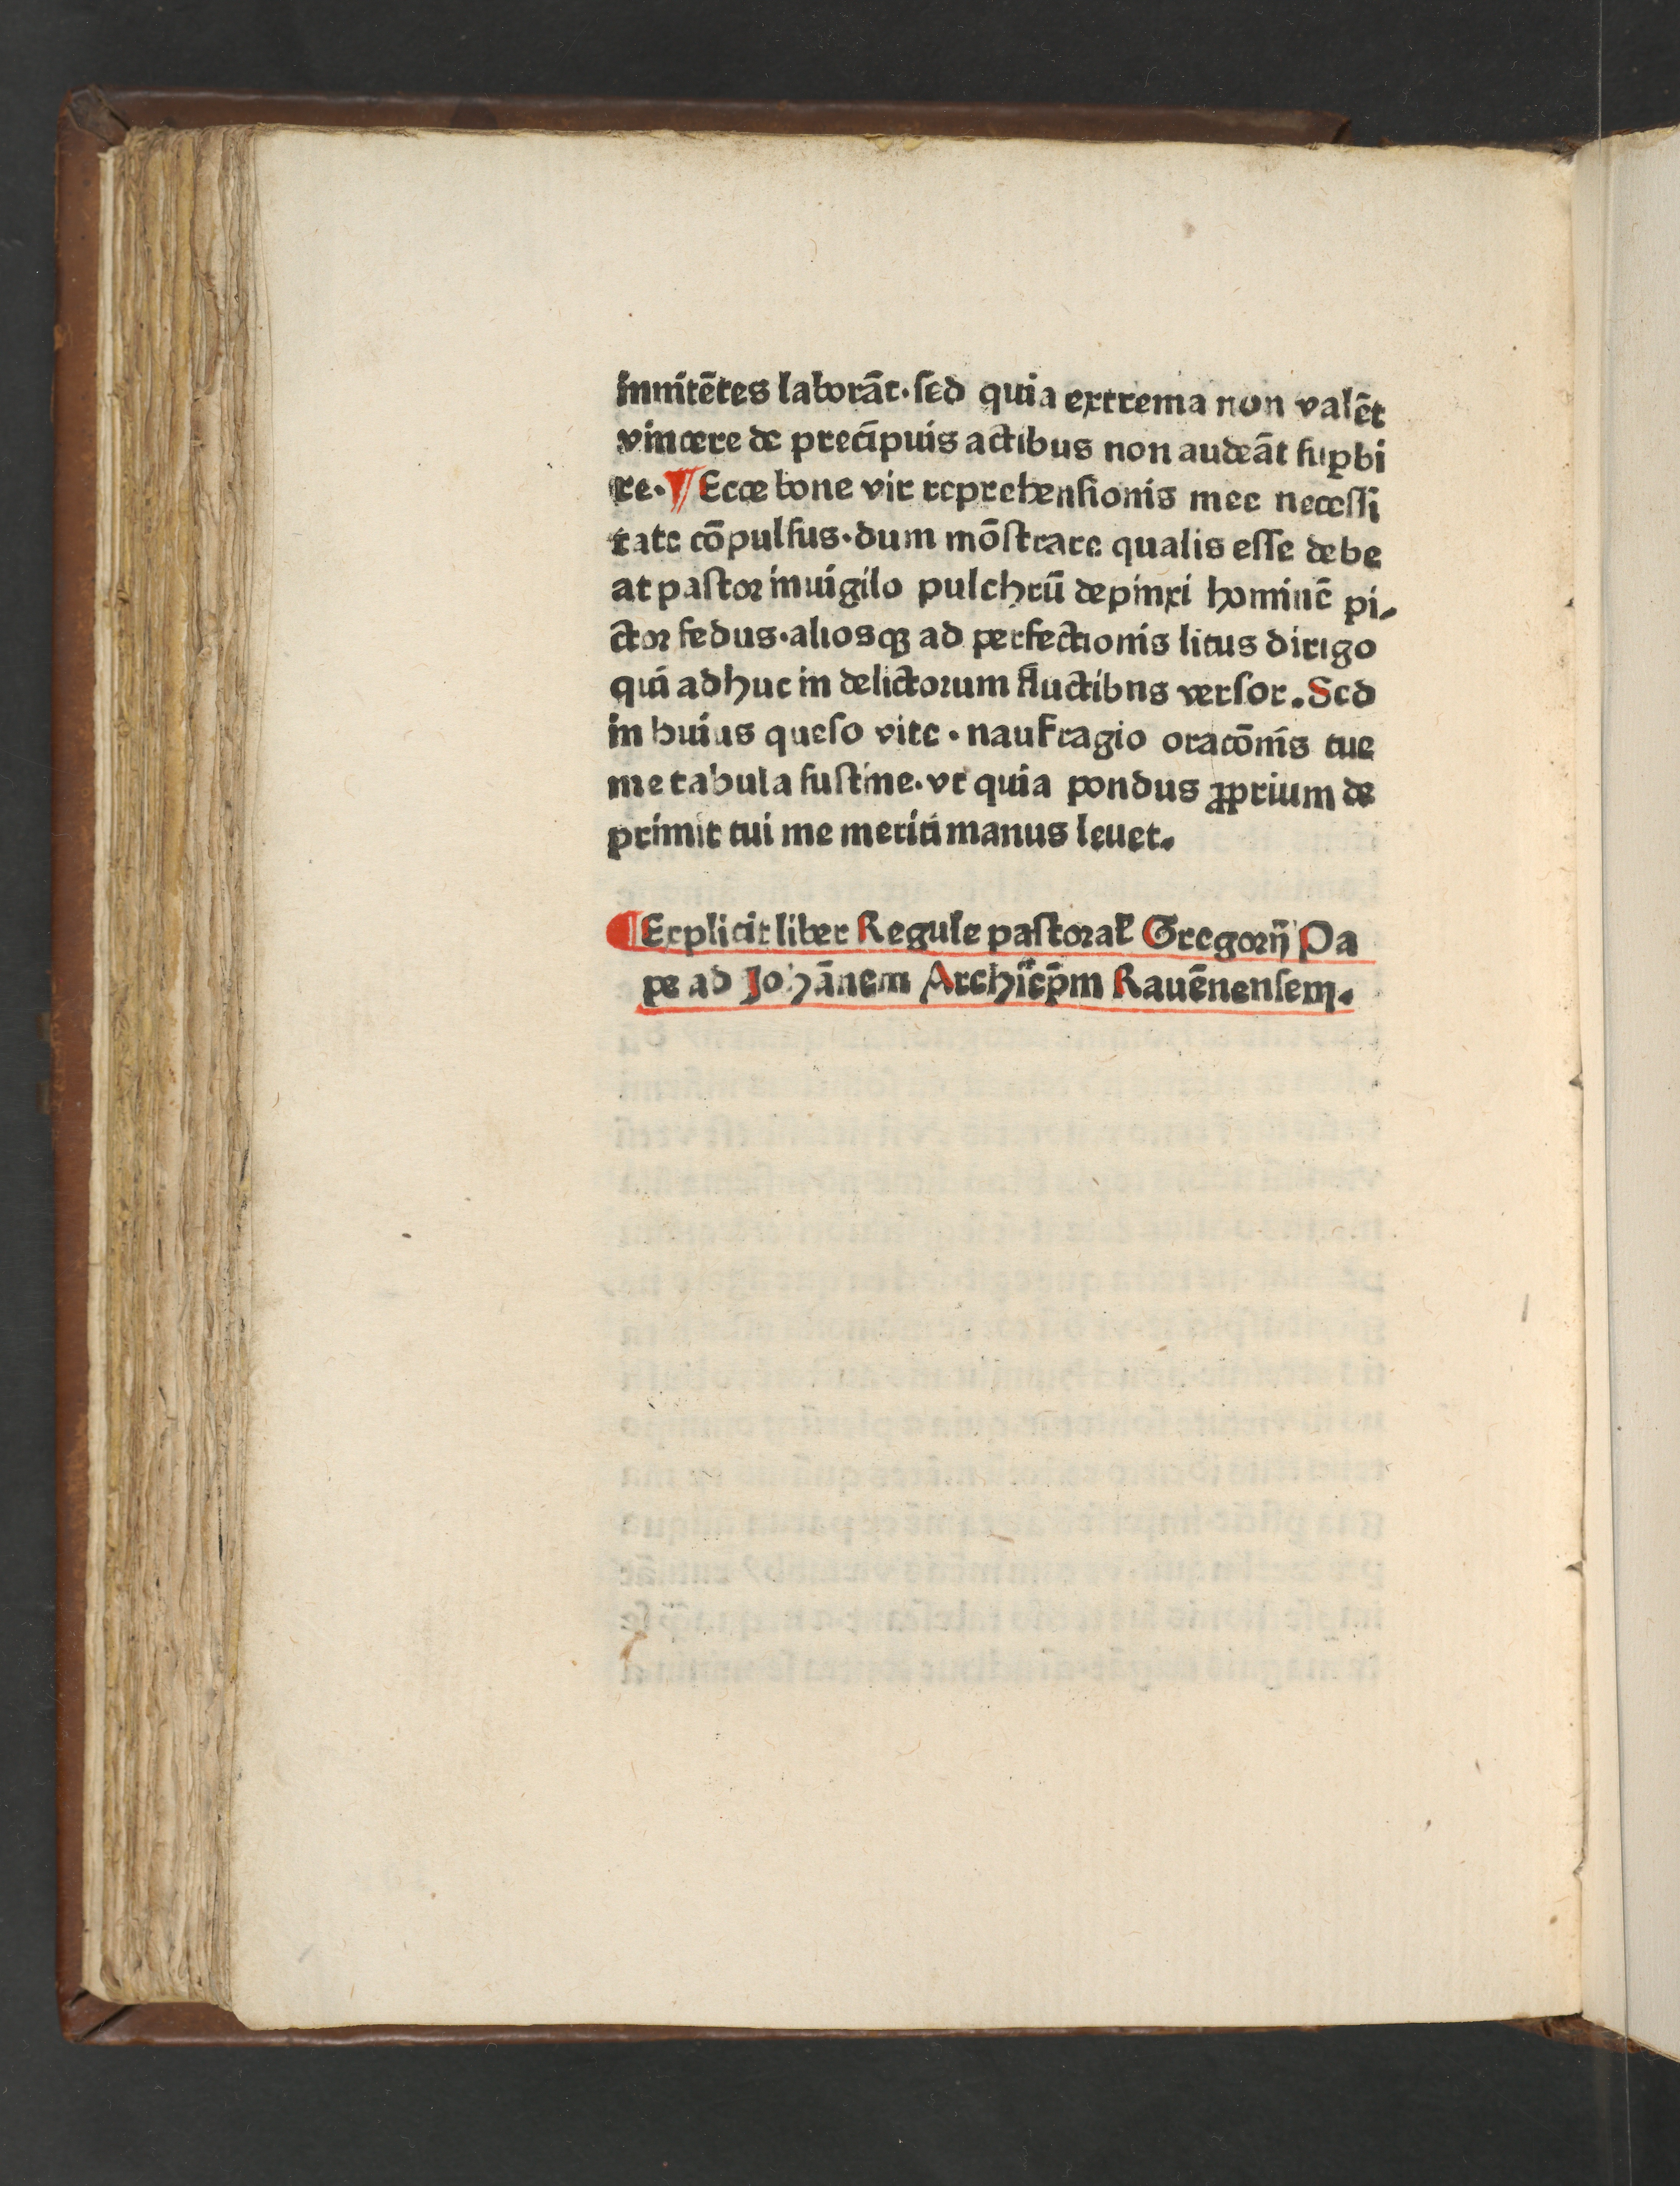 innitētes laborāt·ſed quia extrema non valēt
vincere de precipuis actibus non audeāt ſuꝑbi
re·¶ Ecce bone vir reprehenſionis mee neceſſi
tate cōpulſus·dum mōſtrare qualis eſſe debe
at paſtor inuigilo pulchrū depinxi hominē pi-
ctor fedus·alioſqꝫ ad perfectionis litus dirigo
qui adhuc in delictorum fluctibns verſor. Sed
in huius queſo vite · naufragio oracōnis tue
me tabula ſuſtine·vt quia pondus ꝓprium de
primit tui me meriti manus leuet.
¶Explicit liber Regule paſtoral̄ Gregorij Pa
pe ad Johānem Archiep̄m Rauēnenſem.